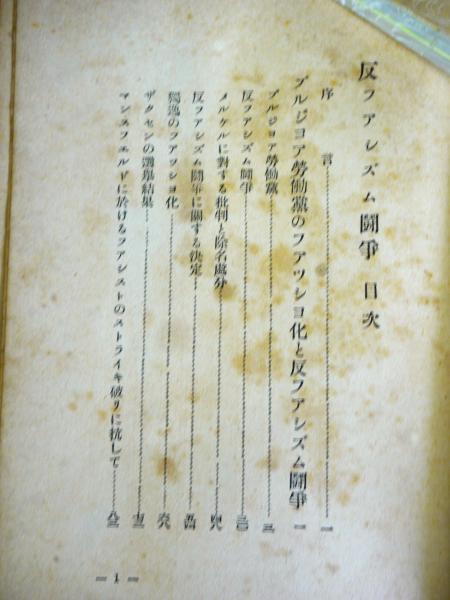 反フアシズム鬪爭　目次
序　言……一
ブルジヨア勞働黨のフアツシヨ化と反フアシズム鬪爭　一
ブルジヨア勞働黨……三
反フアシズム鬪爭……三〇
メルケルに對する批判と除名處分……四八
反フアシズム鬪爭に關する決定……五四
獨逸のフアツシヨ化……六八
ザクセンの選擧結果……七三
マンスフエルドに於けるフアシストのストライキ破りに抗して……八三
= 1 =